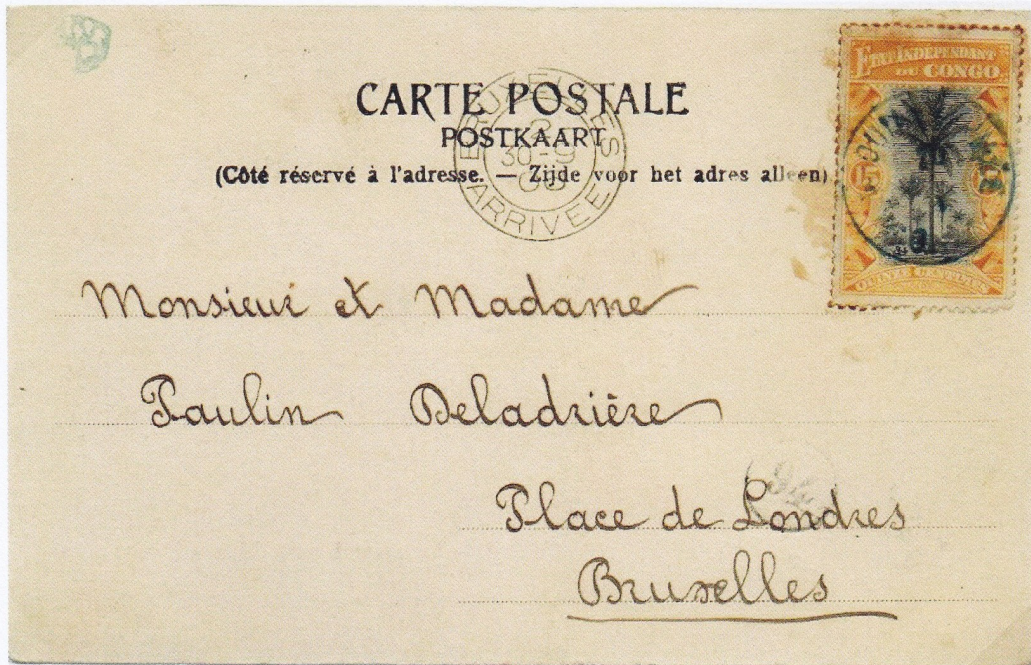 CARTE POSTALE
POSTKAART
(Côté réservé à l'adresse. — Zijde voor het adres alleen)
BRUXELLES
30-9
ARRIVEE
ETAT INDÉPENDANT
DU CONGO
15
QUINZE CENTIMES
Monsieur et Madame
Paulin Deladrière
Place de Londres
Bruxelles